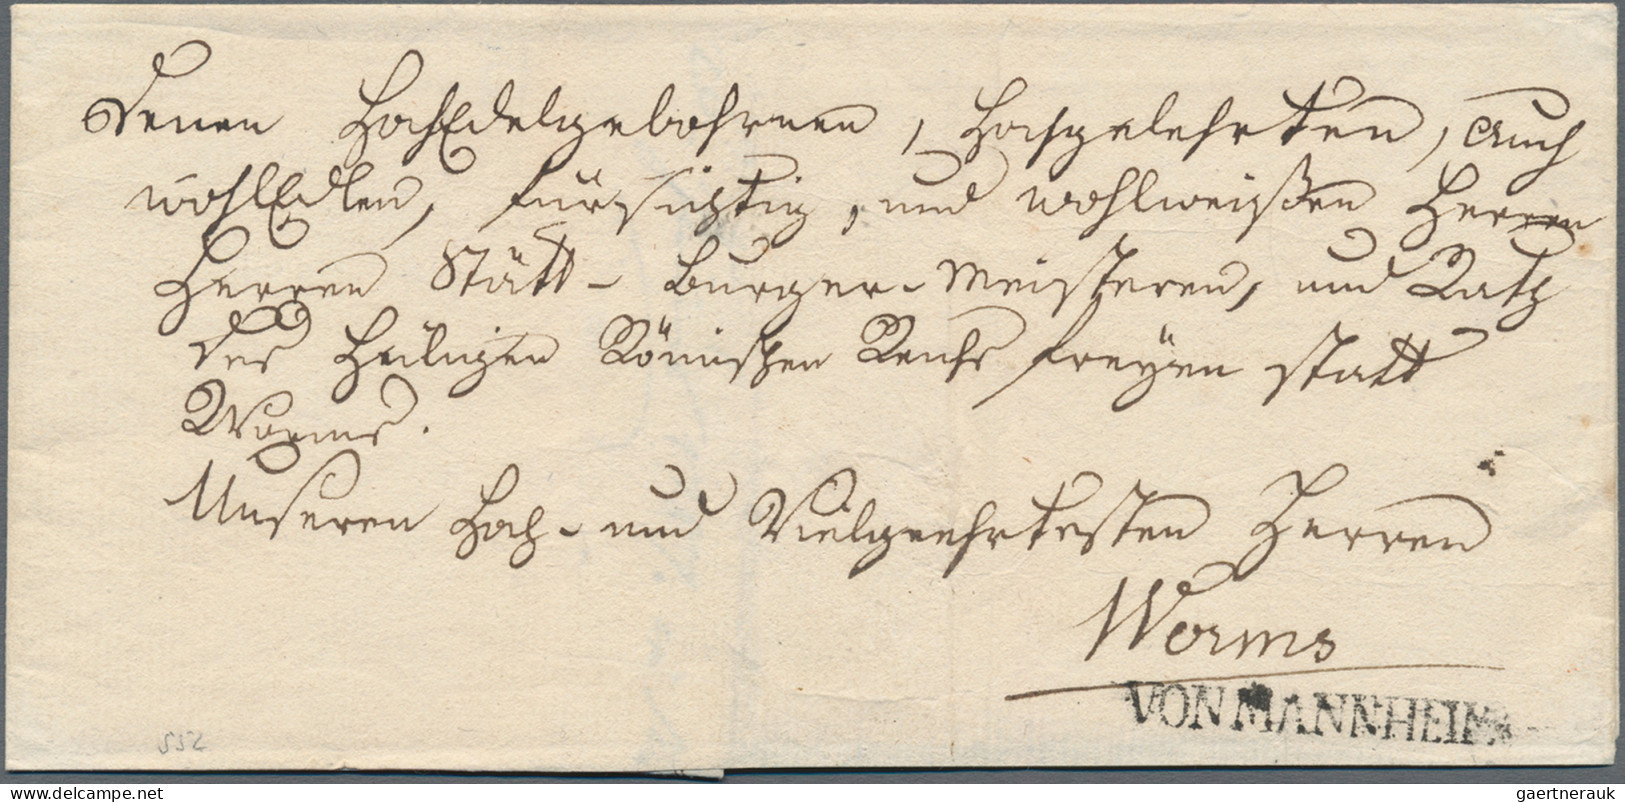 Denen HochEdelgebohrnen, Hochgelehrten, auch
wohlEdlen, fürsichtig, und wohlweißen Herren
Herren Stätt- Burger-Meisteren, und Rath
des Heiligen Römischen Reichs freyen statt
Worms.
Unseren Hoch- und Vielgeehrtesten Herren
Worms
VON MANNHEIM
552
delcampe.net
gaertnerauk